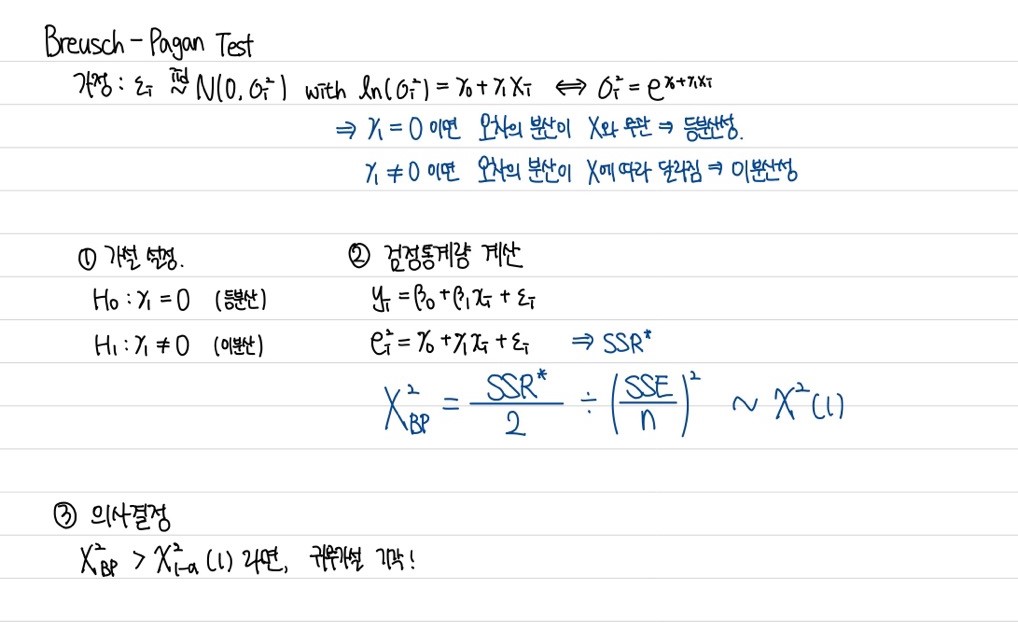 Breusch-Pagan Test
가정 : εᵢ ~ N(0, σᵢ²) with ln(σᵢ²) = γ₀ + γ₁Xᵢ ⇔ σᵢ² = e^(γ₀+γ₁Xᵢ)
⇒ γ₁ = 0 이면 오차의 분산이 X와 무관 ⇒ 등분산성.
γ₁ ≠ 0 이면 오차의 분산이 X에 따라 달라짐 ⇒ 이분산성
① 가설 설정.
H₀ : γ₁ = 0 (등분산)
H₁ : γ₁ ≠ 0 (이분산)
② 검정통계량 계산
yᵢ = β₀ + β₁xᵢ + εᵢ
eᵢ² = γ₀ + γ₁xᵢ + εᵢ ⇒ SSR*
X²_BP = SSR*/2 ÷ (SSE/n)² ~ χ²(1)
③ 의사결정
X²_BP > χ²_1-α (1) 라면, 귀무가설 기각!